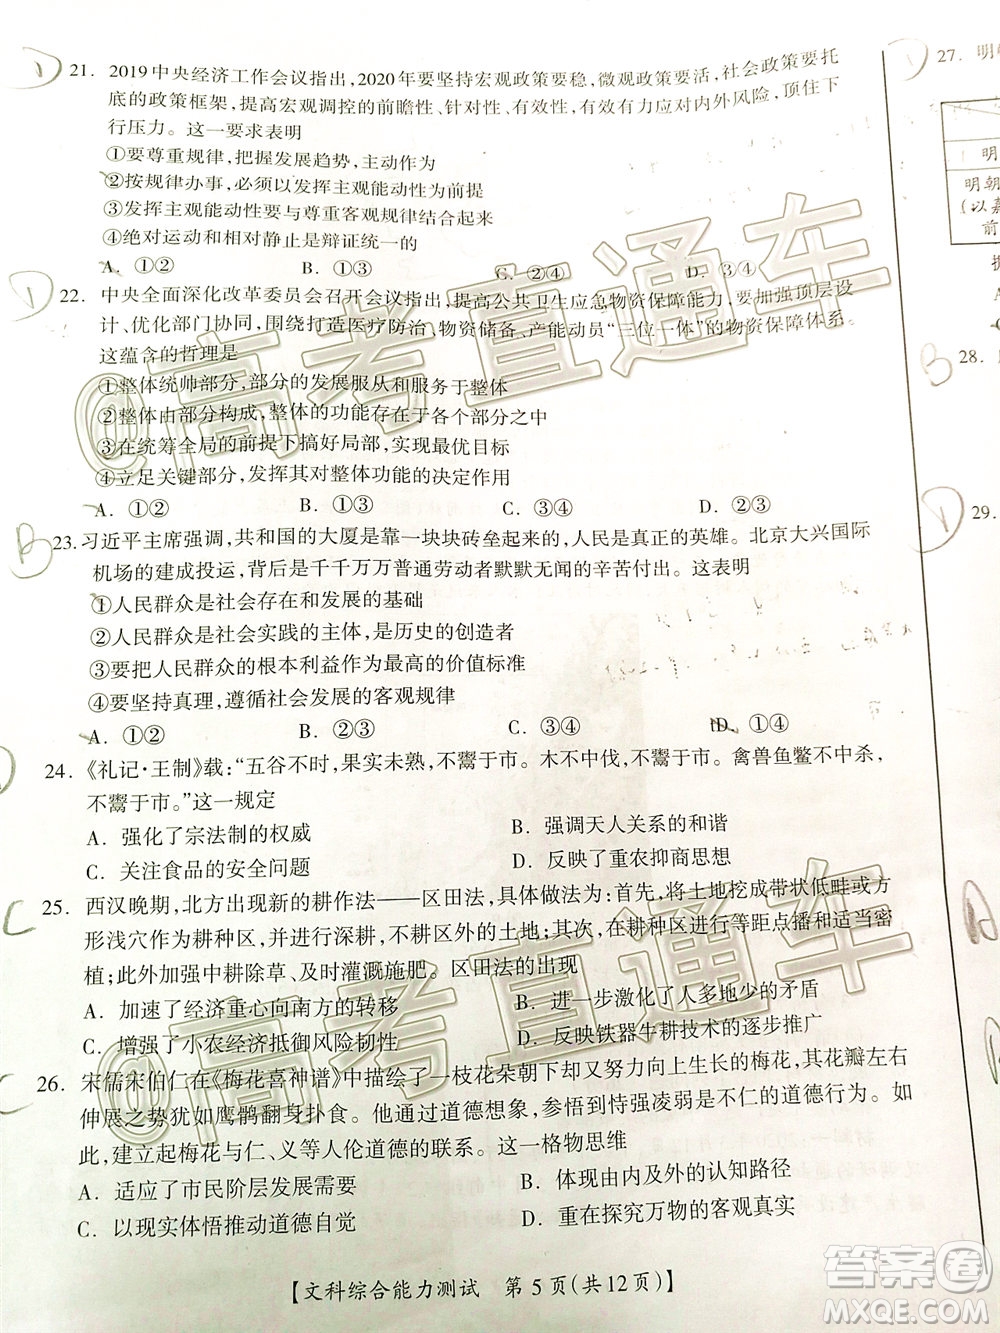 21. 2019中央经济工作会议指出,2020年要坚持宏观政策要稳,微观政策要活,社会政策要托
底的政策框架,提高宏观调控的前瞻性、针对性、有效性,有效有力应对内外风险,顶住下
行压力。这一要求表明
①要尊重规律,把握发展趋势,主动作为
②按规律办事,必须以发挥主观能动性为前提
③发挥主观能动性要与尊重客观规律结合起来
④绝对运动和相对静止是辩证统一的
A. ①② B. ①③ C. ②④ D. ③④
22. 中央全面深化改革委员会召开会议指出,提高公共卫生应急物资保障能力,要加强顶层设
计、优化部门协同,围绕打造医疗防治、物资储备、产能动员“三位一体”的物资保障体系。
这蕴含的哲理是
①整体统帅部分,部分的发展和解决服务于整体
②整体由部分构成,整体的功能存在于各个部分之中
③在统筹全局的前提下搞好局部,实现最优目标
④立足关键部分,发挥其对整体功能的决定作用
A. ①② B. ①③ C. ②④ D. ③④
23. 习近平主席强调,共和国的大厦是靠一块块砖垒起来的,人民是真正的英雄。北京大兴国际
机场的建成投运,背后是千千万万普通劳动者默默无闻的辛苦付出。这表明
①人民群众是社会存在和发展的基础
②人民群众是社会实践的主体,是历史的创造者
③要把人民群众的根本利益作为最高的价值标准
④要坚持真理,遵循社会发展的客观规律
A. ①② B. ②③ C. ③④ D. ①④
24. 《礼记·王制》载:“五谷不时,果实未熟,不鬻于市。木不中伐,不鬻于市。禽兽鱼鳖不中杀,
不鬻于市。”这一规定
A. 强化了宗法制的权威 B. 强调天人关系的和谐
C. 关注食品的安全问题 D. 反映了重农抑商思想
25. 西汉晚期,北方出现新的耕作法——区田法,具体做法为:首先,将土地挖成带状低畦或方
形浅穴作为耕种区,并进行深耕,不耕区外的土地;其次,在耕种区内进行等距点播和适当密
植;此外加强中耕除草、及时灌溉施肥。区田法的出现
A. 加速了经济重心向南方的转移 B. 进一步激化了人多地少的矛盾
C. 增强了小农经济抵御风险韧性 D. 反映铁器牛耕技术的逐步推广
26. 宋儒宋伯仁在《梅花喜神谱》中描绘了一枝花朵朝下却又努力向上生长的梅花,其花瓣左右
伸展之势犹如鹰鹘翻身扑食。他能够通过道德想象,参悟到恃强凌弱是不仁义的道德本
体,并建立起梅花与仁、义等人伦道德的联系。这一格物思维
A. 适应了市民阶层发展需要 B. 体现由内及外的认知路径
C. 以现实体悟推动道德自觉 D. 重在探究万物的客观真实
【文科综合能力测试 第5页(共12页)】
27. 明
明
明朝
(以嘉
前
28.
29.
D
D
B
D
C
D
B
D
A
@高考直通车
@高考直通车
答案圈
MXQE.COM